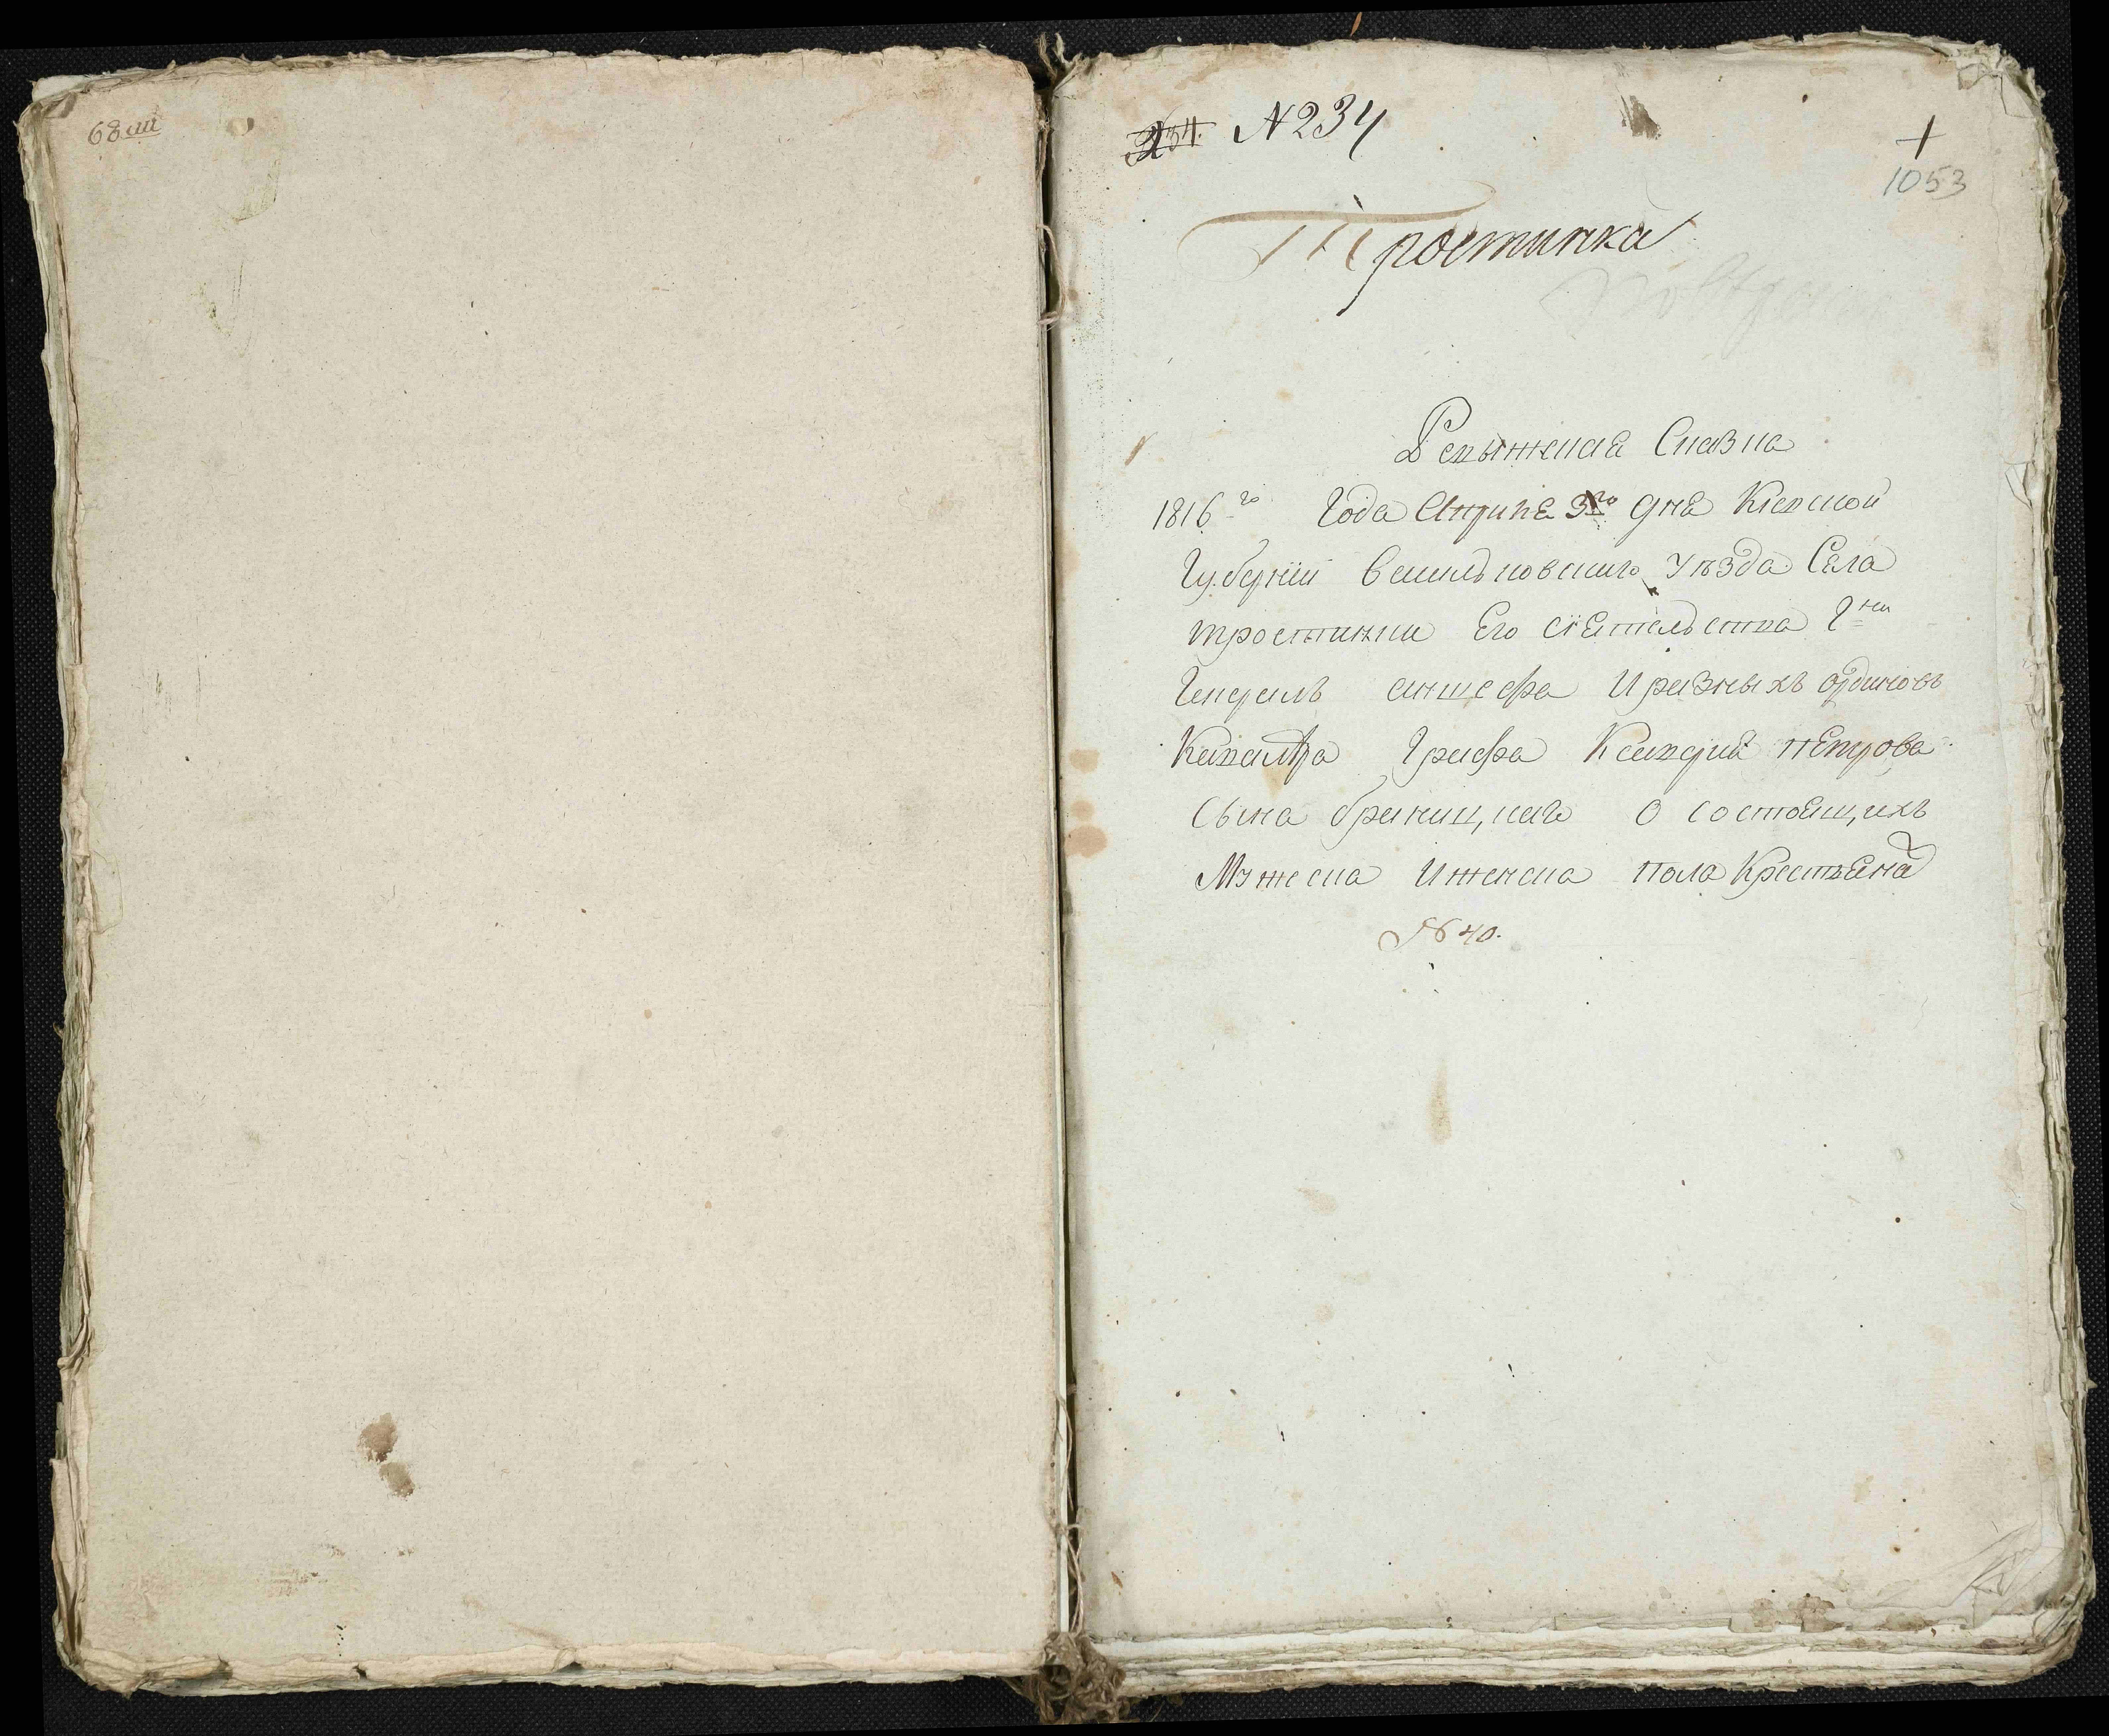 68
234. N234
1053
Тростинка
Ревыжская Сказка
1816го Года Априля 3го дня Кіевской
Губерніи Василковского Уѣзда Села
тростинки Его сіятельства Гна
Генералъ аншефа И разныхъ ординовъ
Кавалѣра Графа Ксаверия пѣтрова
Сына браницкаго О состоящихъ
Мужеска И женска пола Крестьяна
№ 40.